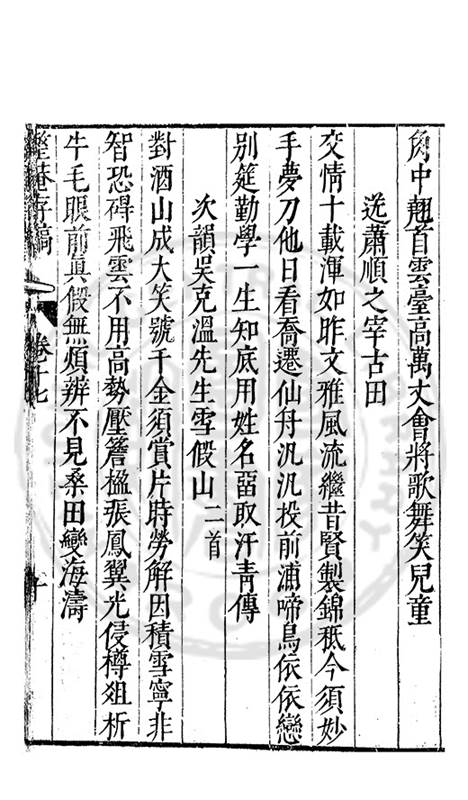 角中翹首雲臺高萬丈會將歌舞笑兒童
送蕭順之宰古田
交情十載渾如昨文雅風流繼昔賢製錦秪今須妙
手夢刀他日看喬遷仙舟汎汎投前浦啼鳥依依戀
別筵勤學一生知底用姓名畱取汗青傳
次韻吳克溫先生雪假山二首
對酒山成大笑號千金須賞片時勞解因積雪寧非
智恐碍飛雲不用高勢壓簷楹張鳳翼光侵樽俎析
牛毛眼前真假無煩辨不見桑田變海濤
庵存稿 卷十七 十